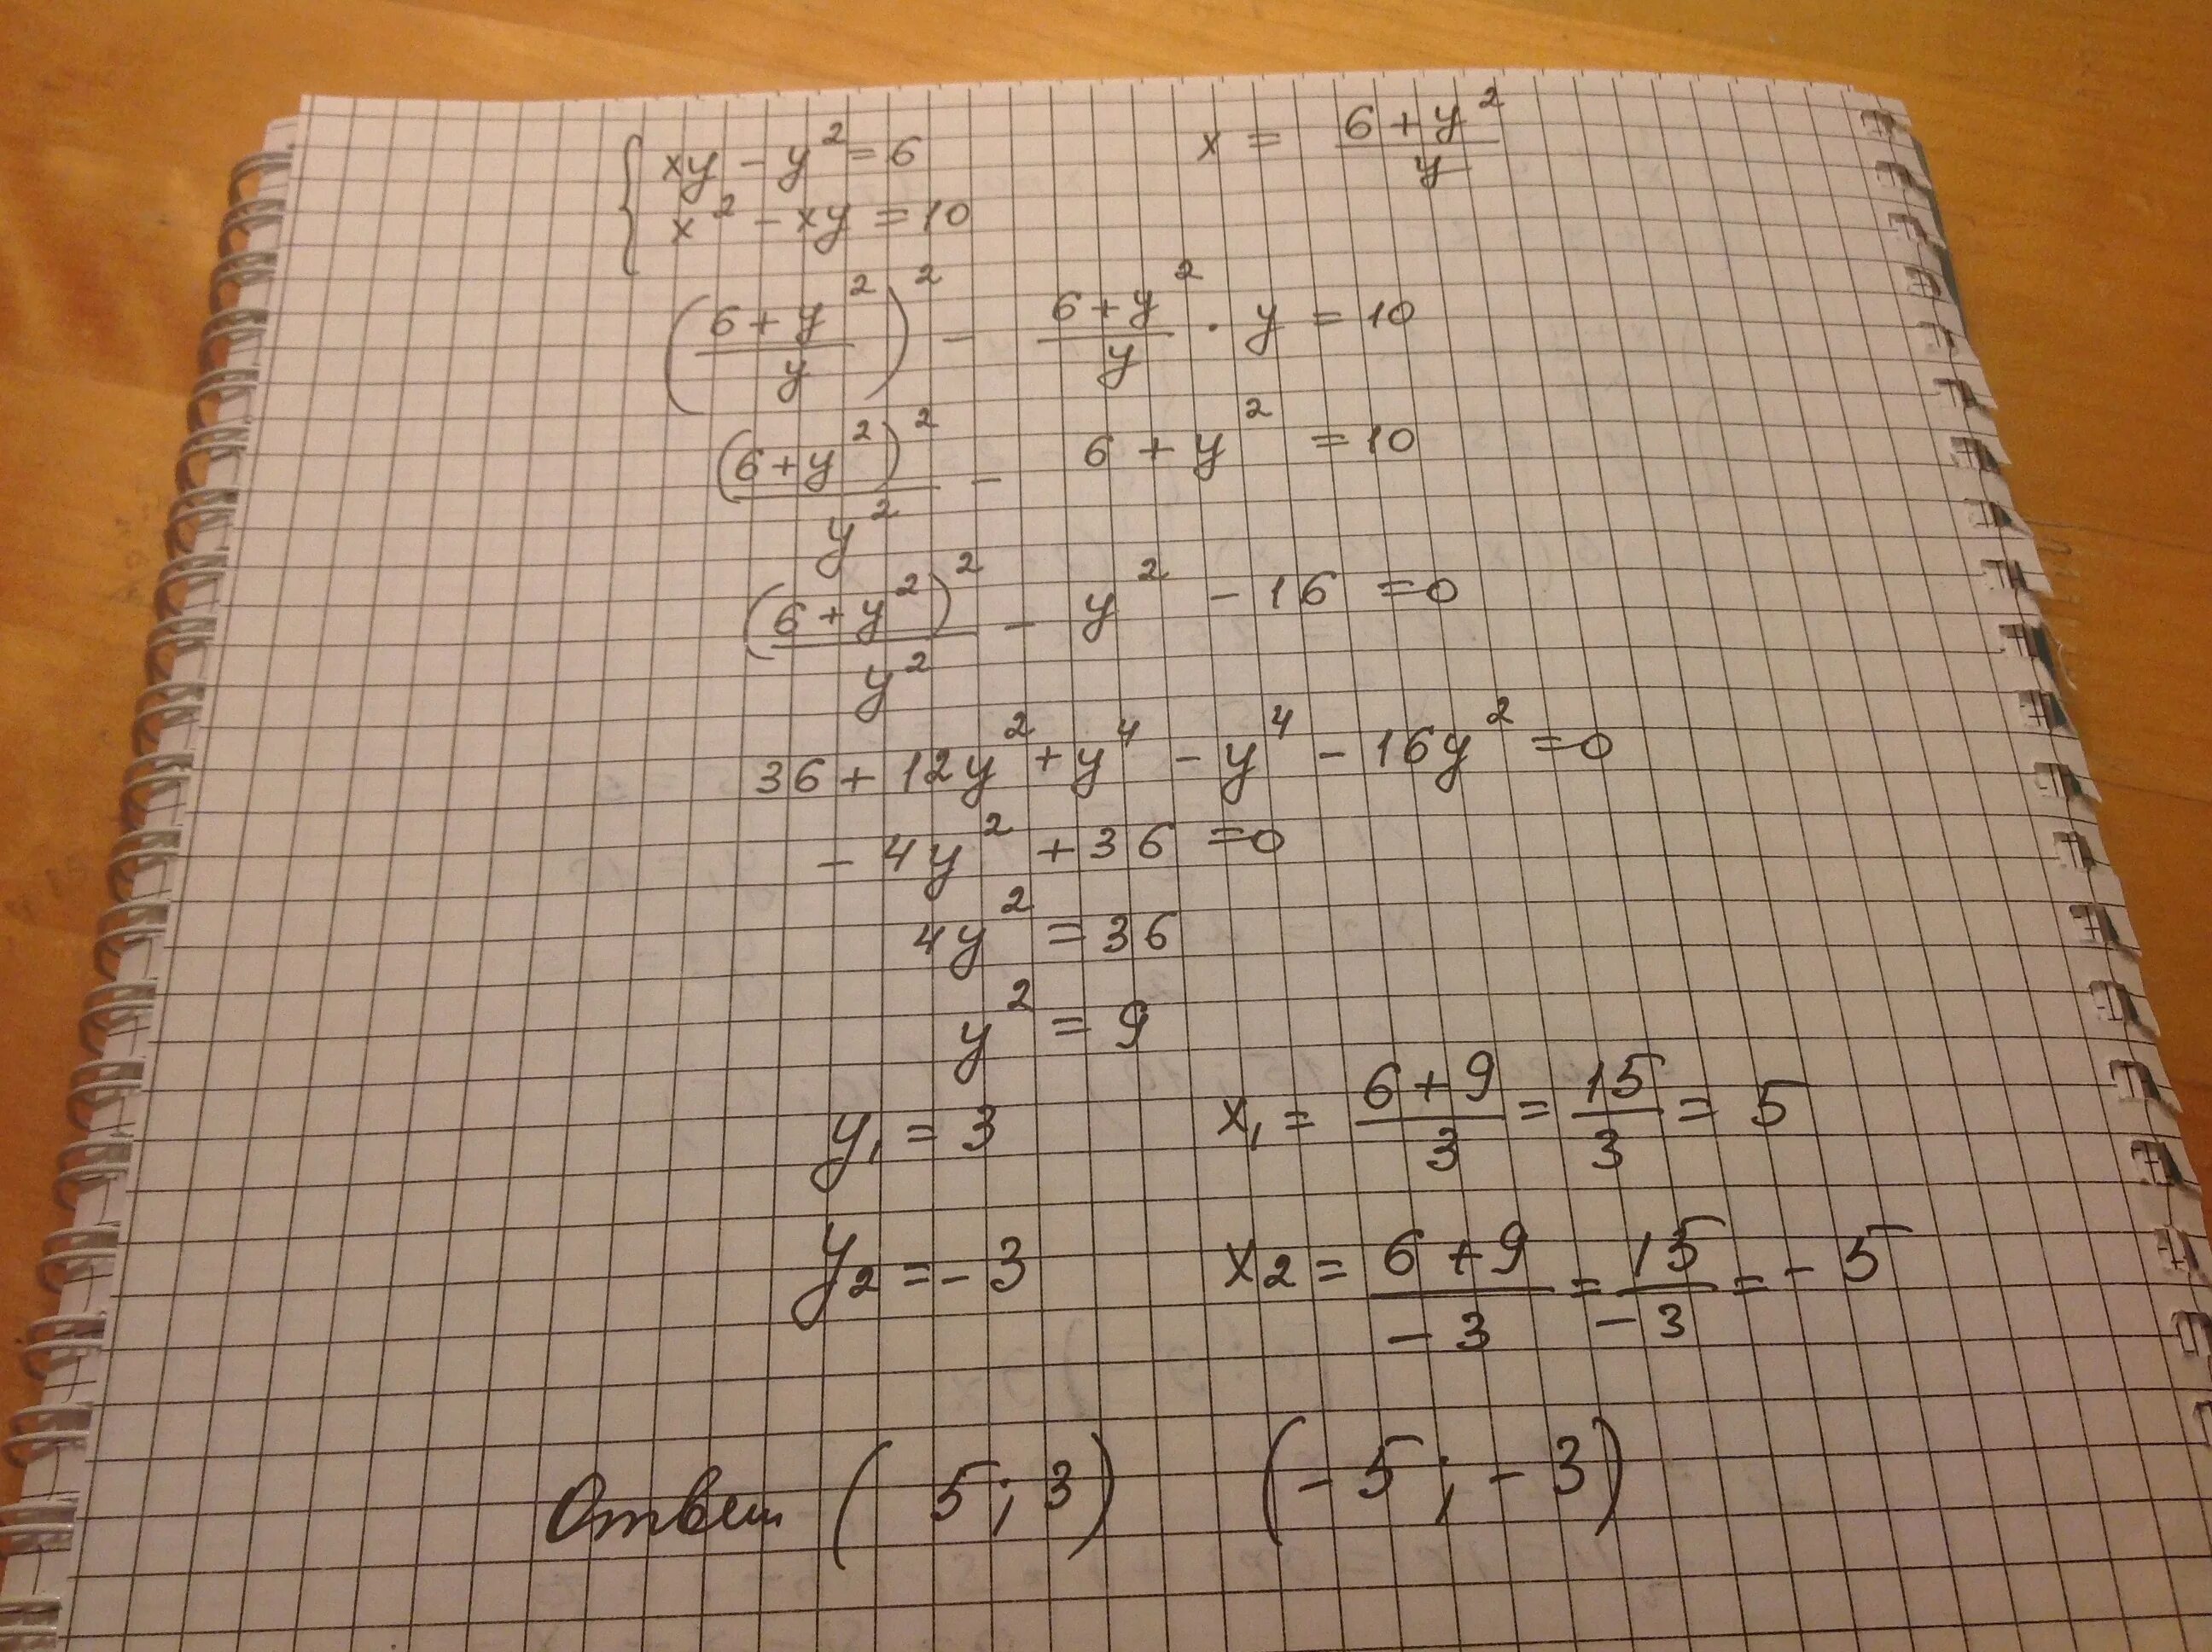 { xy - y² = 6
x² - xy = 10
x = (6 + y²)/y
((6 + y²)/y)² - (6 + y²)/y · y = 10
(6 + y²)²/y² - 6 + y² = 10
(6 + y²)²/y² - y² - 16 = 0
36 + 12y² + y⁴ - y⁴ - 16y² = 0
- 4y² + 36 = 0
4y² = 36
y² = 9
y₁ = 3 x₁ = (6 + 9)/3 = 15/3 = 5
y₂ = - 3 x₂ = (6 + 9)/- 3 = 15/- 3 = - 5
Ответ ( 5; 3 ) ( - 5 ; - 3 )